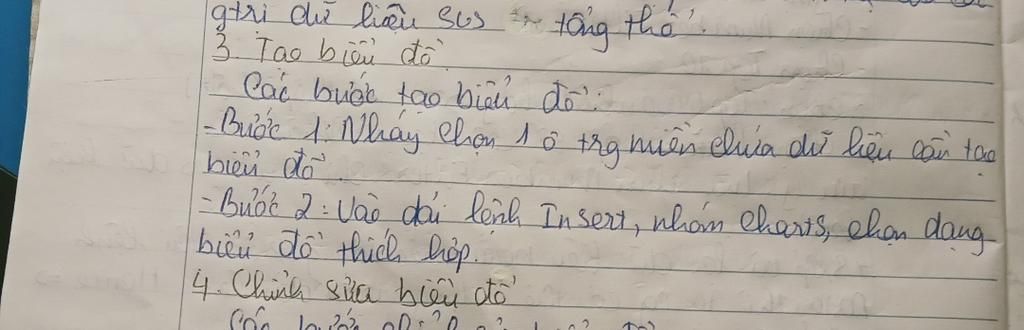 gtrị dữ liệu sss tổng thể.
3. Tạo biểu đồ
Các bước tạo biểu đồ:
-Bước 1: Nháy chọn 1 ô trg miền chứa dữ liệu cần tạo
biểu đồ.
-Bước 2: Vào dải lệnh Insert, nhóm charts, chọn dạng
biểu đồ thích hợp.
4. Chỉnh sửa biểu đồ
Các bước